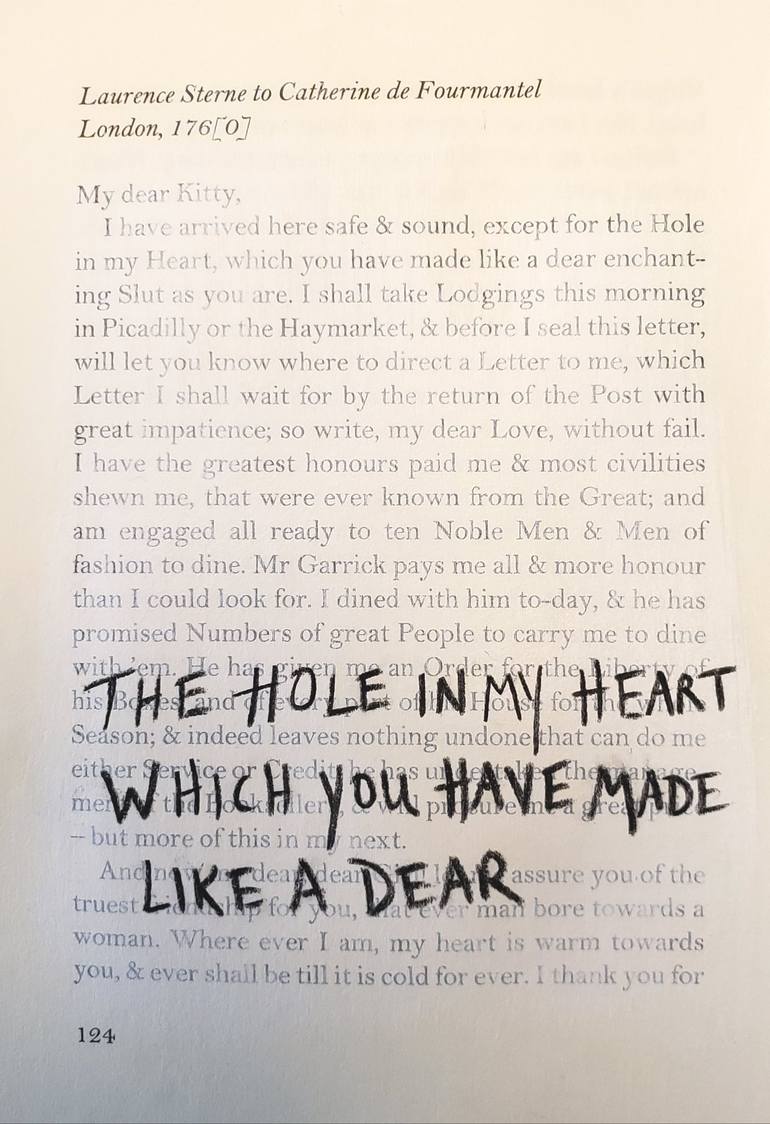 Laurence Sterne to Catherine de Fourmantel
London, 176[0]
My dear Kitty,
I have arrived here safe & sound, except for the Hole
in my Heart, which you have made like a dear enchant-
ing Slut as you are. I shall take Lodgings this morning
in Picadilly or the Haymarket, & before I seal this letter,
will let you know where to direct a Letter to me, which
Letter I shall wait for by the return of the Post with
great impatience; so write, my dear Love, without fail.
I have the greatest honours paid me & most civilities
shewn me, that were ever known from the Great; and
am engaged all ready to ten Noble Men & Men of
fashion to dine. Mr Garrick pays me all & more honour
than I could look for. I dined with him to-day, & he has
promised Numbers of great People to carry me to dine
with 'em. He has given me an Order for the Liberty of
his Boxes, and of every part of House for
THE HOLE IN MY HEART
Season; & indeed leaves nothing undone that can do me
either Service or Credit; he has the manage-
WHICH YOU HAVE MADE
ment of the & will procure me a great
– but more of this in my next.
And now dear, dear assure you of the
LIKE A DEAR
truest friendship for you, that ever man bore towards a
woman. Where ever I am, my heart is warm towards
you, & ever shall be till it is cold for ever. I thank you for
124